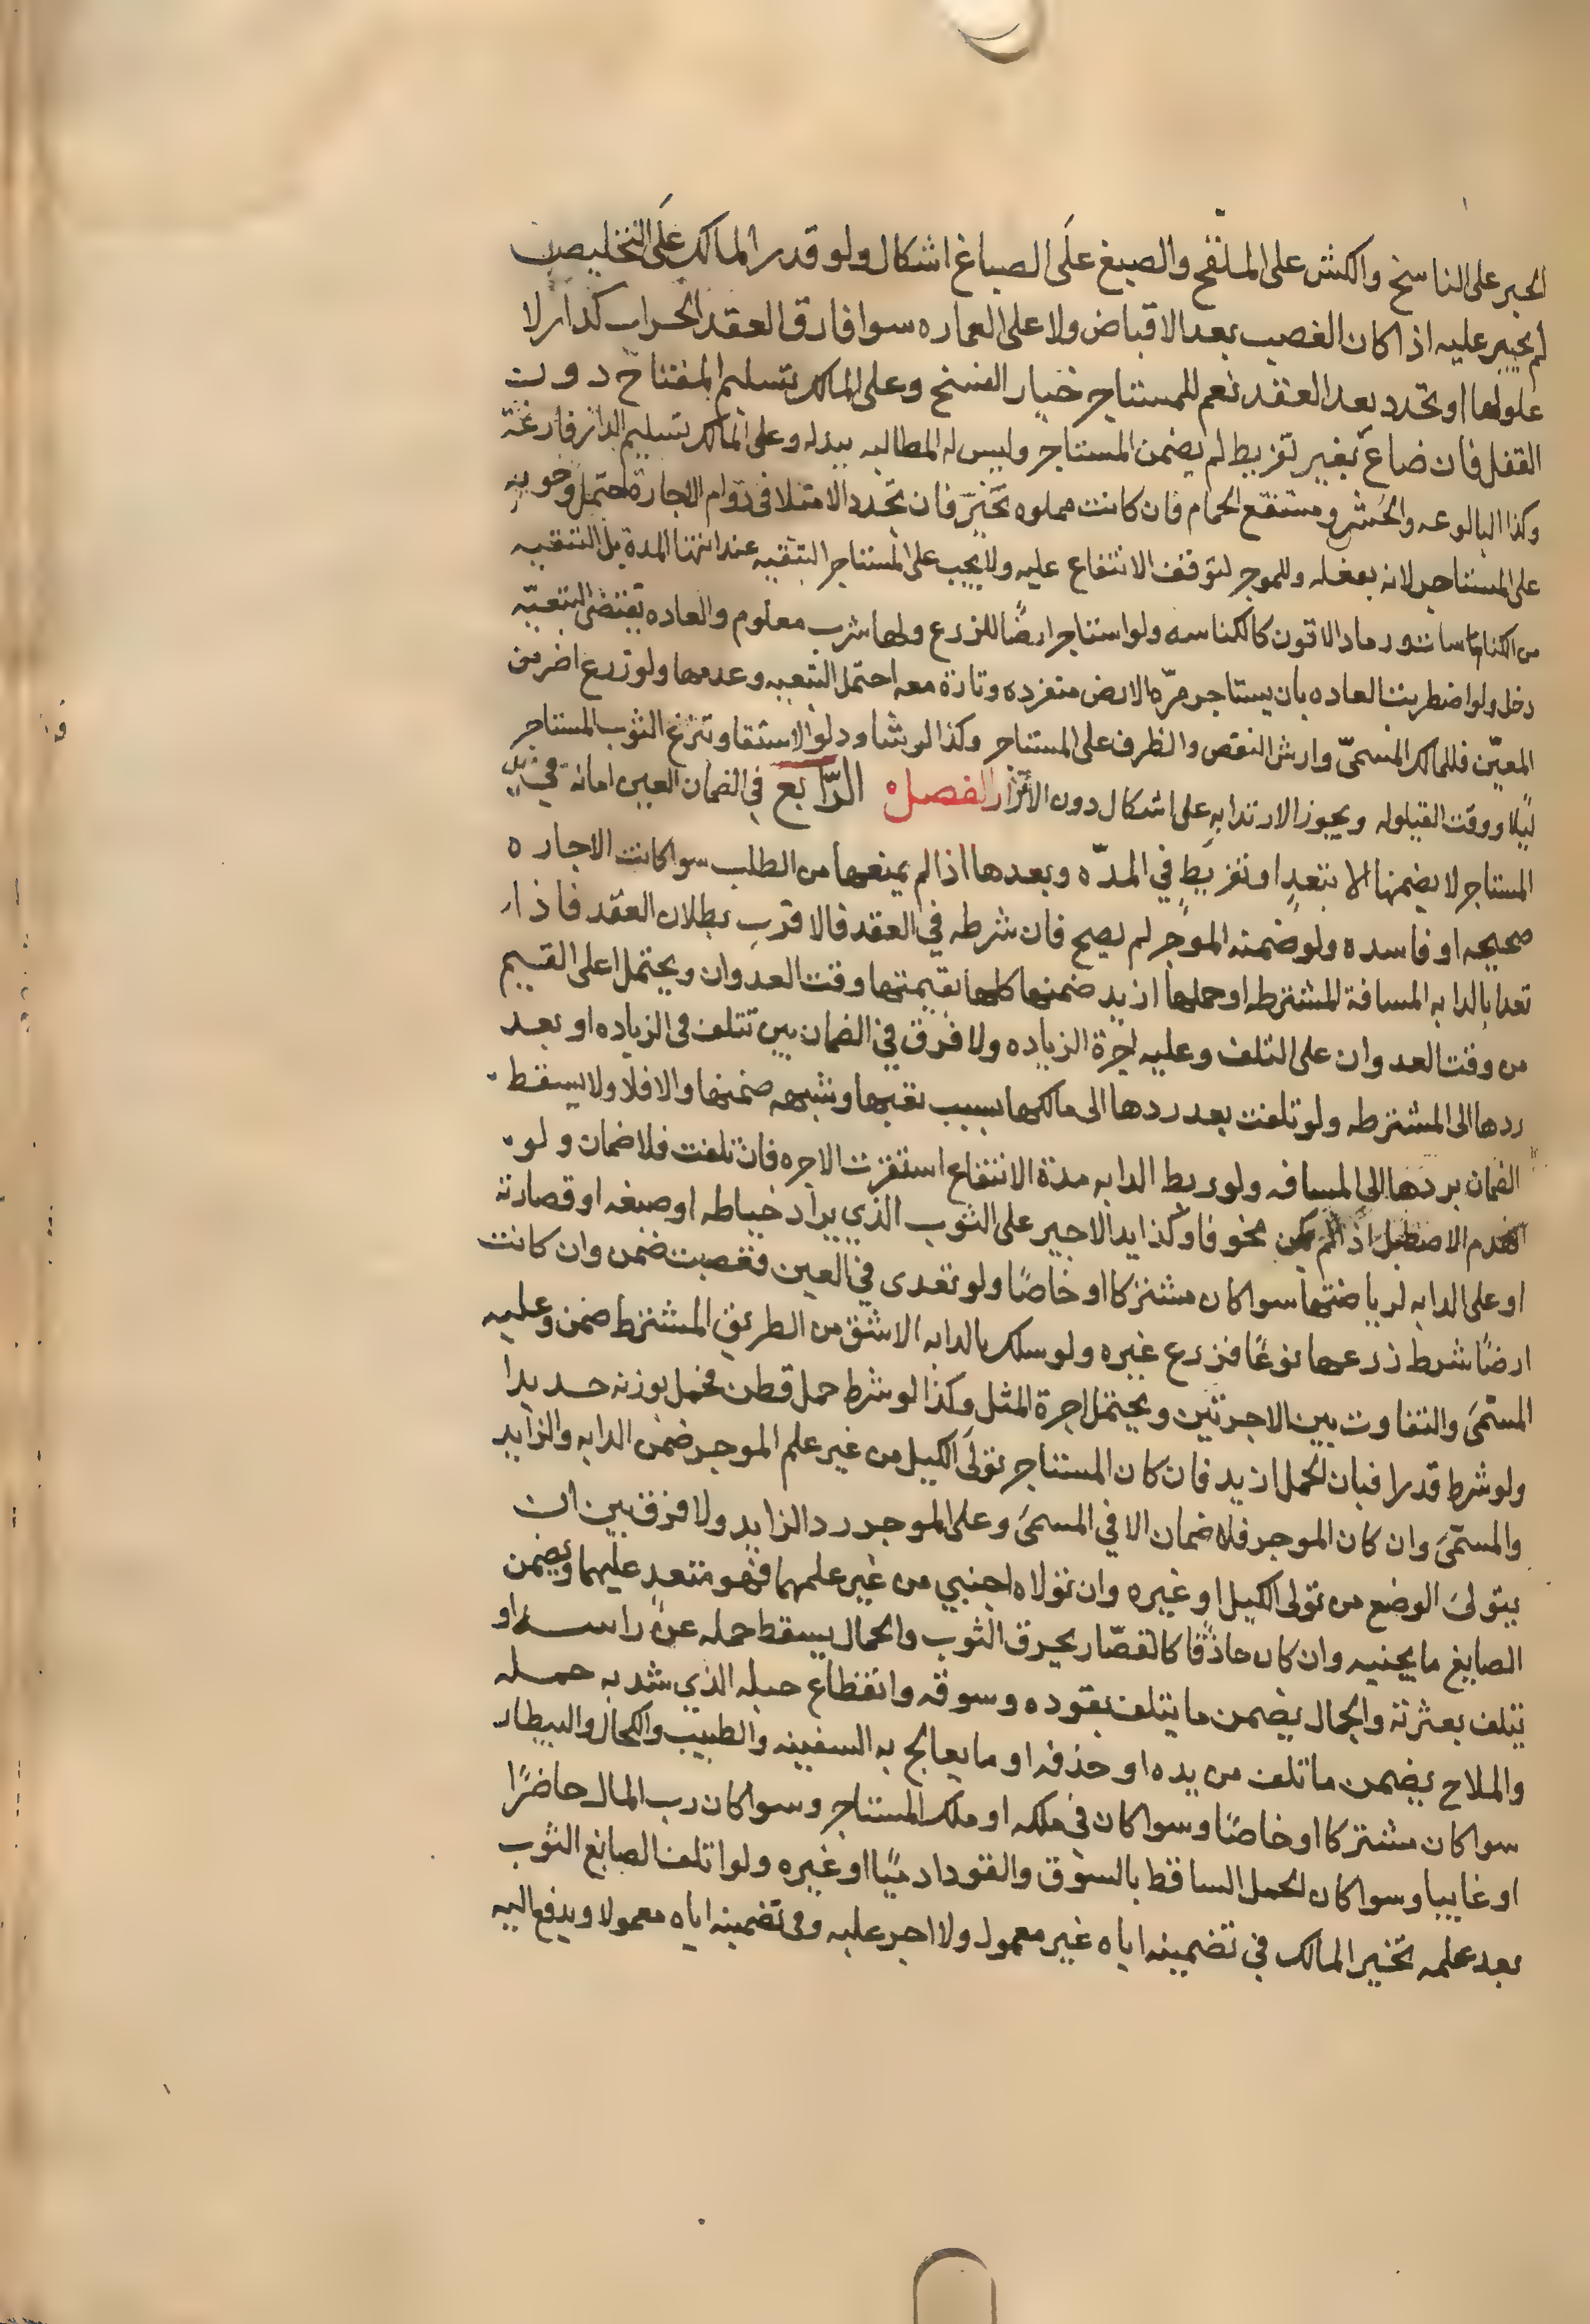 الحبر على الناسخ والكش على الملقح والصبغ على الصباغ اشكال ولو قدر المالك على التخليص
لم يجبر عليه اذا كان الغصب بعد الاقباض ولا على العماره سوا قارن العقد الخراب كدار لا
غلق لها او تجدد بعد العقد نعم للمستاجر خيار الفسخ وعلى المالك تسليم المفتاح دون
القفل فان ضاع بغير تفريط لم يضمن المستاجر وليس له المطالبه ببدله وعلى المالك تسليم الدار فارغة
وكذا البالوعه والحش ومستنقع الحمام فان كانت مملوه تخير فان تجدد الامتلا في دوام الاجارة احتمل وجوبه
على المستاجر لانه بفعله وللموجر لتوقف الانتفاع عليه ولا يجب على المستاجر التنقيه عند انتها المدة بل التنقيه
من الكناسات ورماد الاتون كالكناسه ولو استاجر ارضًا للزرع ولها شرب معلوم والعاده تقتضي التبعيّه
دخل ولو اضطربت العاده بان يستاجر مرّه الارض منفرده وتارة معه احتمل التبعيه وعدمها ولو زرع اضر من
المعيّن فللمالك المسمىّ وارش النقص والظرف على المستاجر وكذا الرشا ودلو الاستقا وتنزع الثوب المستاجر
ليلًا ووقت القيلوله ويجوز الارتدا به على اشكال دون الاتزار الفصل الرّابع في الضمان العين امانة في يد
المستاجر لا يضمنها الا بتعدٍ او تفريطٍ في المدّه وبعدها اذا لم يمنعها من الطلب سوا كانت الاجاره
صحيحه او فاسده ولو ضمنه الموجر لم يصح فان شرطه في العقد فالاقرب بطلان العقد فاذا
تعدا بالدابه المسافة المشترطه او حملها ازيد ضمنها كلها بقيمتها وقت العدوان ويحتمل اعلى القيم
من وقت العدوان على التلف وعليه اجرة الزياده ولا فرق في الضمان بين تتلف في الزياده او بعد
ردها الى المشترطه ولو تلفت بعد ردها الى مالكها بسبب تعبها وشبهه ضمنها والا فلا ولا يسقط
الضمان بردها الى المسافه ولو ربط الدابه مدة الانتفاع استقرت الاجره فان تلفت فلا ضمان ولو
انهدم الاصطبل اذا لم يكن مخوفا وكذا يد الاجير على الثوب الذي يراد خياطه او صبغه او قصارته
او على الدابه لرياضتها سوا كان مشتركا او خاصًا ولو تعدى في العين فغصبت ضمن وان كانت
ارضًا شرط زرعها نوعًا فزرع غيره ولو سلك بالدابه الاشق من الطريق المشترط ضمن وعليه
المسمىَ والتفاوت بين الاجرتين ويحتمل اجرة المثل وكذا لو شرط حمل قطن فحمل بوزنه حديدا
ولو شرط قدرا فبان الحمل ازيد فان كان المستاجر تولىَ الكيل من غير علم الموجر ضمن الدابه والزايد
والمسمّىَ وان كان الموجر فلا ضمان الا في المسمىَ وعلى الموجر رد الزايد ولا فرق بين ان
يتولىَ الوضع من تولى الكيل او غيره وان تولاه اجنبي من غير علمهما فهو متعدٍ عليهما ويضمن
الصايغ ما يجنيه وان كان حاذقًا كالقصّار يحرق الثوب والحمال يسقط حمله عن راسه او
يتلف بعثرته والجمال يضمن ما يتلف بقوده وسوقه وانقطاع حبله الذي شد به حمله
والملاح يضمن ما تلف من يده او حذفه او ما يعالج به السفينه والطبيب والكحال والبيطار
سوا كان مشتركا او خاصًا وسوا كان في ملكه او ملك المستاجر وسوا كان رب المال حاضرًا
او غايبا وسوا كان الحمل الساقط بالسوق والقود ادميًا او غيره ولو اتلف الصانع الثوب
بعد عمله تخير المالك في تضمينه اياه غير معمول ولا اجر عليه وفي تضمينه اياه معمولا ويدفع اليه